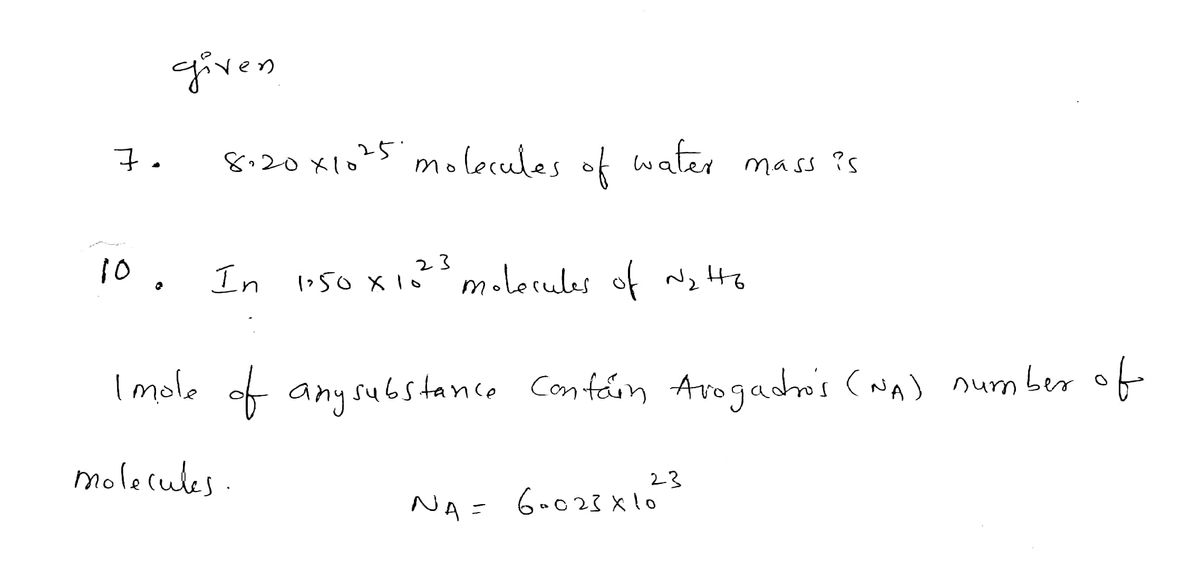 given
7. 8.20 ×10²⁵ molecules of water mass is
10. In 1.50 × 10²³ molecules of N₂H₆
1 mole of any substance contain Avogadro's (NA) number of
molecules.
NA = 6.023 × 10²³